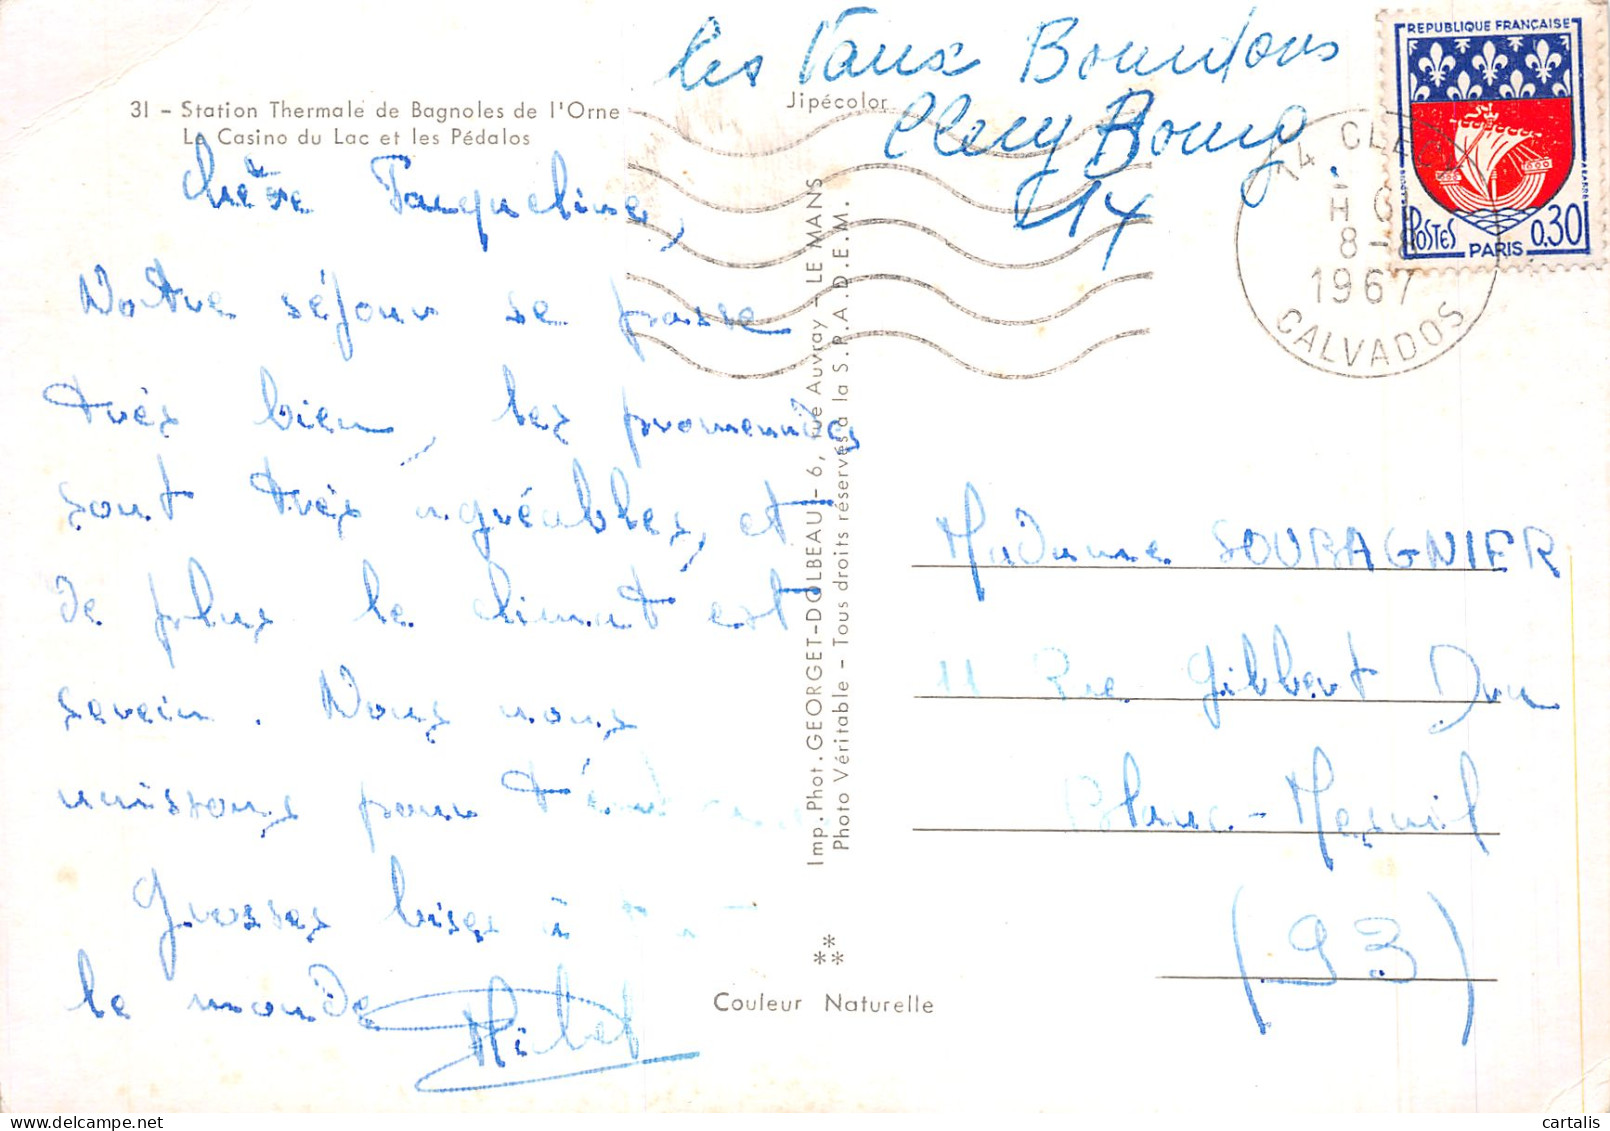 les Vaux Bourdons
Clecy Bourg
14
REPUBLIQUE FRANÇAISE
POSTES
PARIS
0,30
14 CLECY
H
8 - 8
1967
CALVADOS
31 – Station Thermale de Bagnoles de l'Orne
Le Casino du Lac et les Pédalos
Jipécolor
Chère Jacqueline,
Notre séjour se passe
très bien, les promenades
sont très agréables, et
de plus le climat est
serein. Nous nous
unissons pour
Grosses bises à
le monde
Michel
Imp. Phot. GEORGET-DOLBEAU - 6, rue Auvray - LE MANS
Photo Véritable - Tous droits réservés à la S.P.A.D.E.M.
Couleur Naturelle
Madame SOUBAGNIER
11 Rue Gilbert Dru
Blanc-Mesnil
(93)
cartalis